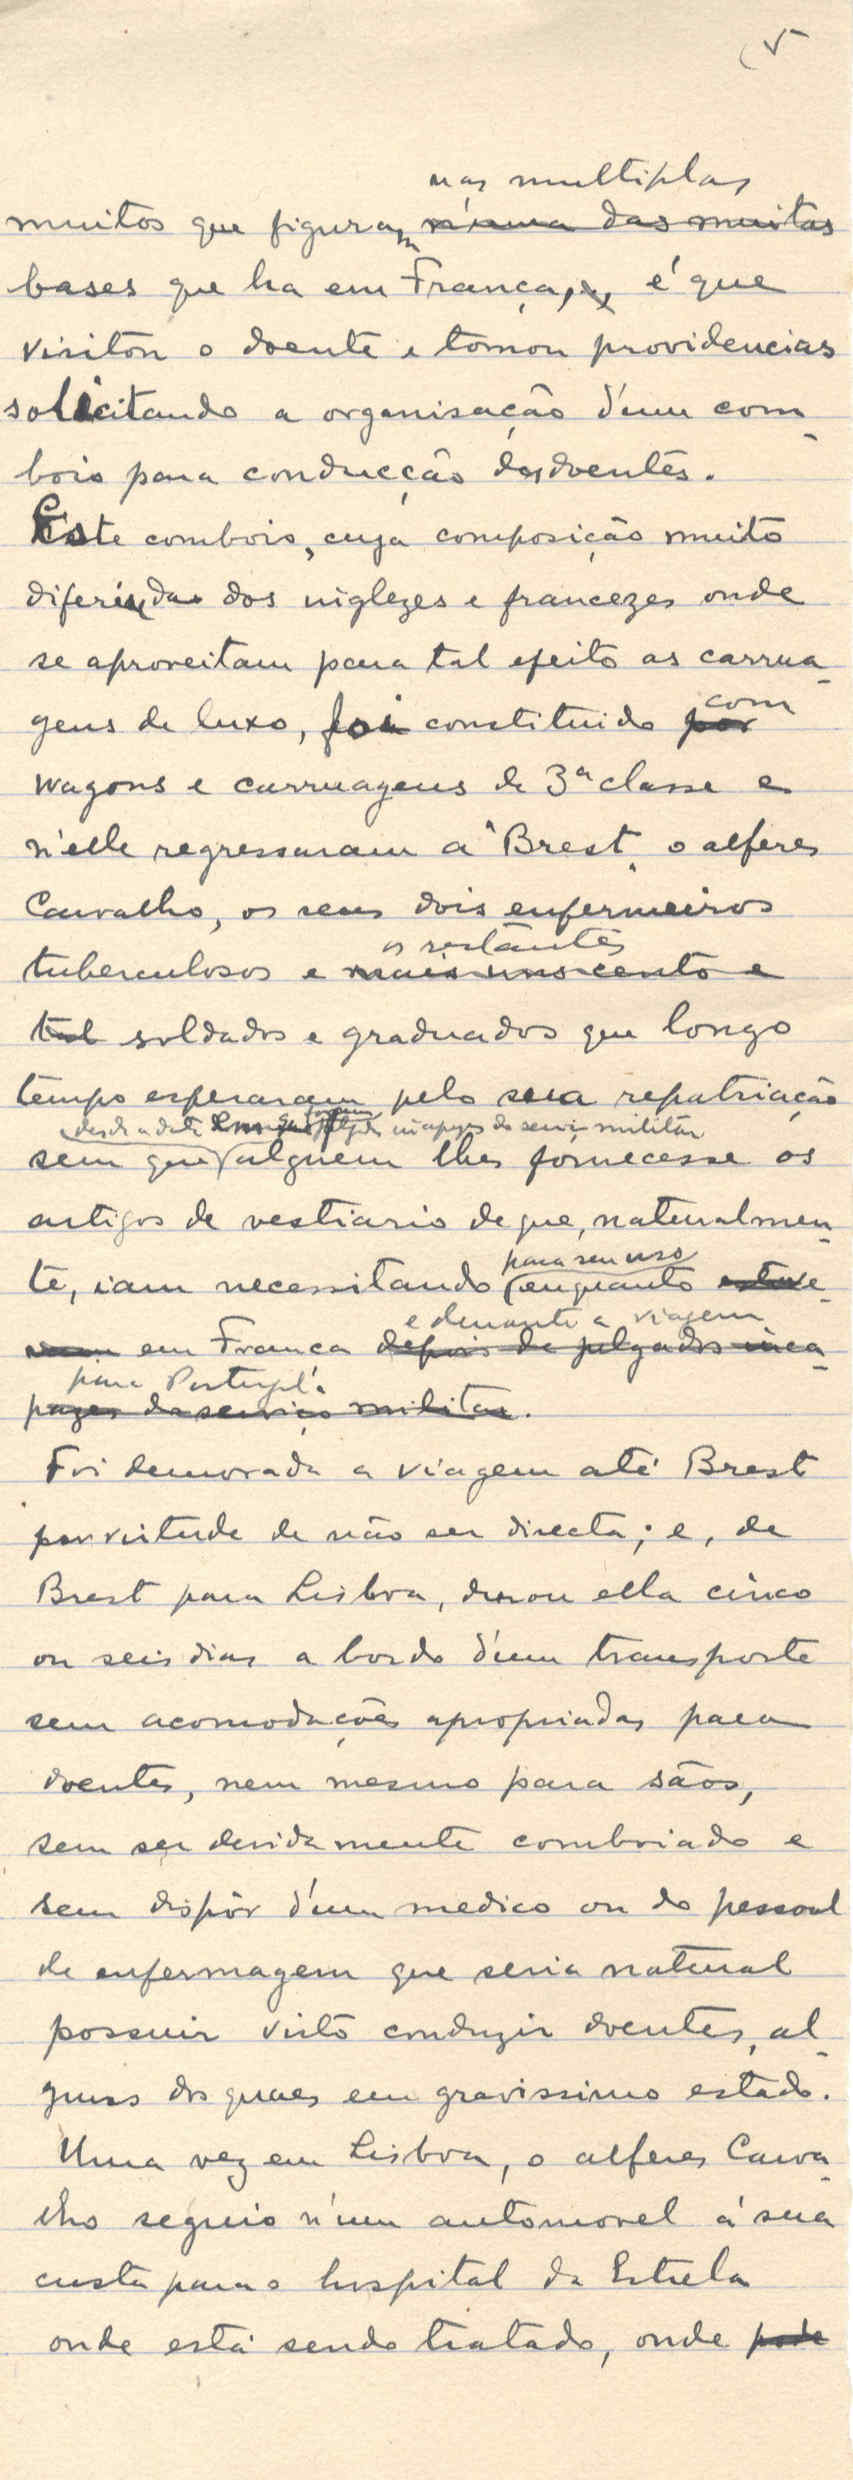 5
nas multiplas
muitos que figuram n'uma das muitas
bases que ha em França, é que
visitou o doente e tomou providencias
solicitando a organisação d'um com-
boio para conducção dos doentes.
Este comboio, cuja composição muito
diferia dos inglezes e francezes onde
se aproveitam para tal efeito as carrua-
gens de luxo, foi constituido por com
wagons e carruagens de 3ª classe e
n'elle regressaram a Brest o alferes
Carvalho, os seus dois enfermeiros
os restantes
tuberculosos e mais uns cento e
tal soldados e graduados que longo
tempo esperaram pela sua repatriação
desde a data em que foram julgados incapazes do serviço militar
sem que alguem lhes fornecesse os
artigos de vestiario de que, naturalmen-
para seu uso
te, iam necessitando enquanto estive-
e durante a viagem
ram em França depois de julgados inca-
para Portugal.
pazes do serviço militar.
Foi demorada a viagem até Brest
por virtude de não ser directa; e, de
Brest para Lisboa, durou ella cinco
ou seis dias a bordo d'um transporte
sem acomodações apropriadas para
doentes, nem mesmo para sãos,
sem ser devidamente comboiado e
sem dispôr d'um medico ou do pessoal
de enfermagem que seria natural
possuir visto conduzir doentes, al-
guns dos quaes em gravissimo estado.
Uma vez em Lisboa, o alferes Carva-
lho seguio n'um automovel á sua
custa para o hospital da Estrela
onde está sendo tratado, onde pode